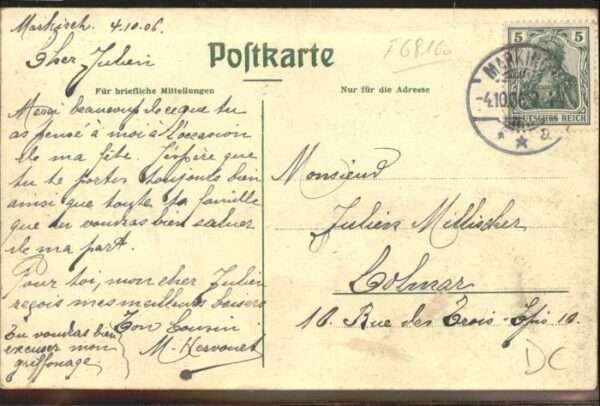 Markirch. 4.10.06.
Cher Julien
Postkarte
Für briefliche Mitteilungen
Nur für die Adresse
Merci beaucoup de ce que tu
as pensé à moi à l'occasion
de ma fête. J'espère que
tu te portes toujours bien
ainsi que toute ta famille
que tu voudras bien saluer
de ma part.
Pour toi, mon cher Julien
reçois mes meilleurs baisers
Ton Cousin
M. Hervouet
Tu voudras bien
excuser mon
griffonage
Monsieur
Julien Millischer
Colmar
10. Rue des Trois-Epis 10.
5 5
DEUTSCHES REICH
MARKIRCH
-4.10.06
a
DC